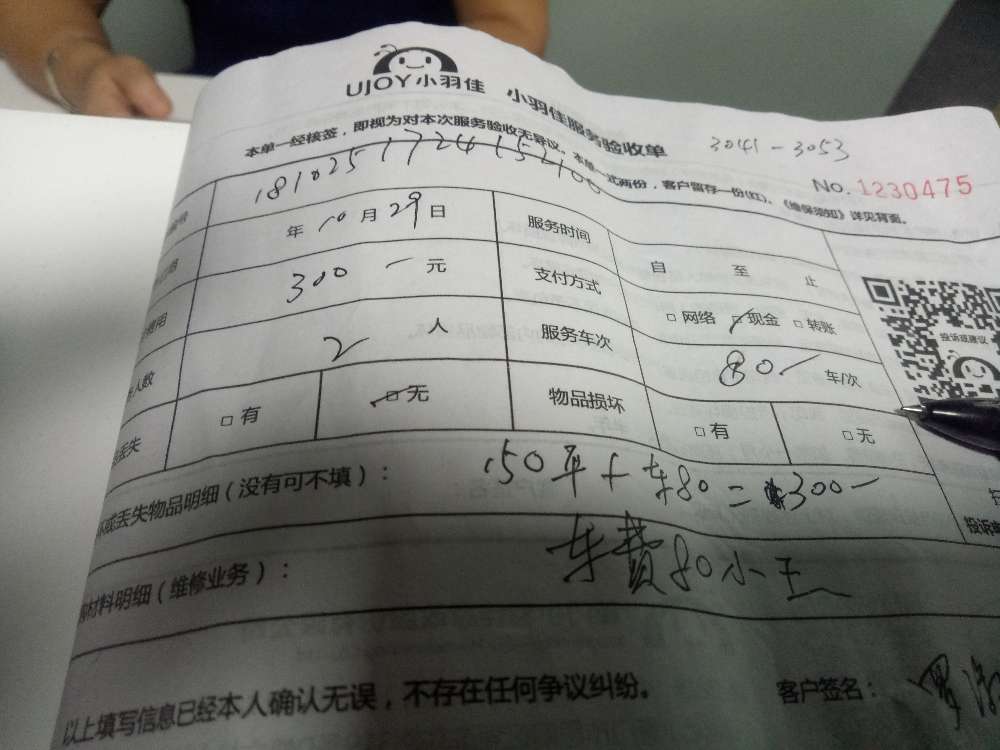 UJOY小羽佳 小羽佳服务验收单
3041-3053
本单一经核签，即视为对本次服务验收无异议。本单一式两份，客户留存一份(红)、《维保须知》详见背面。
No. 1230475
号 1810251724152100
年 10 月 29 日 服务时间 自 至 止
费用 300- 元 支付方式 □网络 □现金 □转账
人数 2 人 服务车次 80- 车/次
丢失 □有 □无 物品损坏 □有 □无
投诉或建议
坏或丢失物品明细（没有可不填）： 150平+车80=300-
材料明细（维修业务）： 车费80小王
投诉
以上填写信息已经本人确认无误，不存在任何争议纠纷。 客户签名：